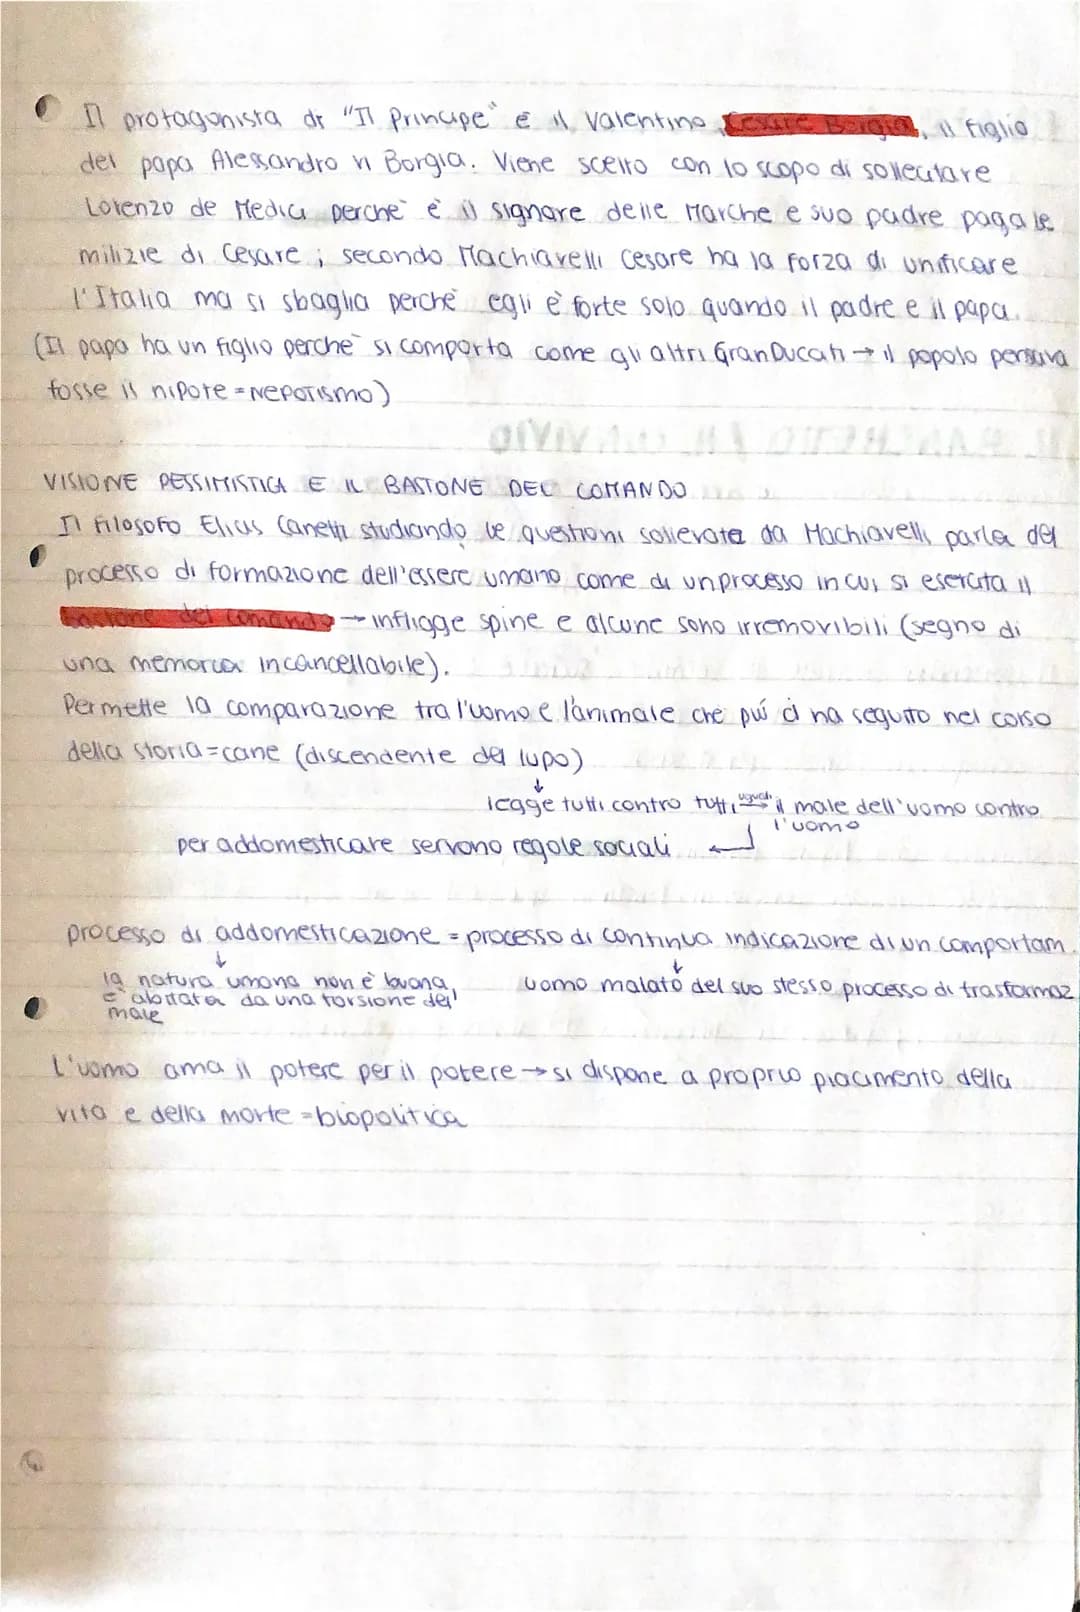 Il protagonista di "Il Principe" è il Valentino, Cesare Borgia, il figlio
del papa Alessandro VI Borgia. Viene scelto con lo scopo di sollecitare
Lorenzo de Medici perchè è il signore delle Marche e suo padre paga le
milizie di Cesare; secondo Machiavelli Cesare ha la forza di unificare
l'Italia ma si sbaglia perchè egli è forte solo quando il padre e il papa.
(Il papa ha un figlio perchè si comporta come gli altri GranDucati → il popolo pensava
fosse il nipote = NEPOTISMO)
VISIONE PESSIMISTICA E IL BASTONE DEL COMANDO
Il filosofo Elias Canetti studiando le questioni sollevate da Machiavelli parla del
processo di formazione dell'essere umano come di un processo in cui si esercita il
bastone del comando → infligge spine e alcune sono irremovibili (segno di
una memoria incancellabile).
Permette la comparazione tra l'uomo e l'animale che più ci ha seguito nel corso
della storia = cane (discendente del lupo)
↓
legge tutti contro tutti uguale → il male dell'uomo contro
l'uomo
per addomesticare servono regole sociali ←
processo di addomesticazione = processo di continua indicazione di un comportam.
↓ ↓
la natura umana non è buona, uomo malato del suo stesso processo di trasformaz
è abitata da una torsione del
male
L'uomo ama il potere per il potere → si dispone a proprio piacimento della
vita e della morte = biopolitica